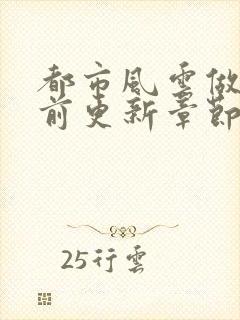 都市風雲做
前更新章節
25行雲